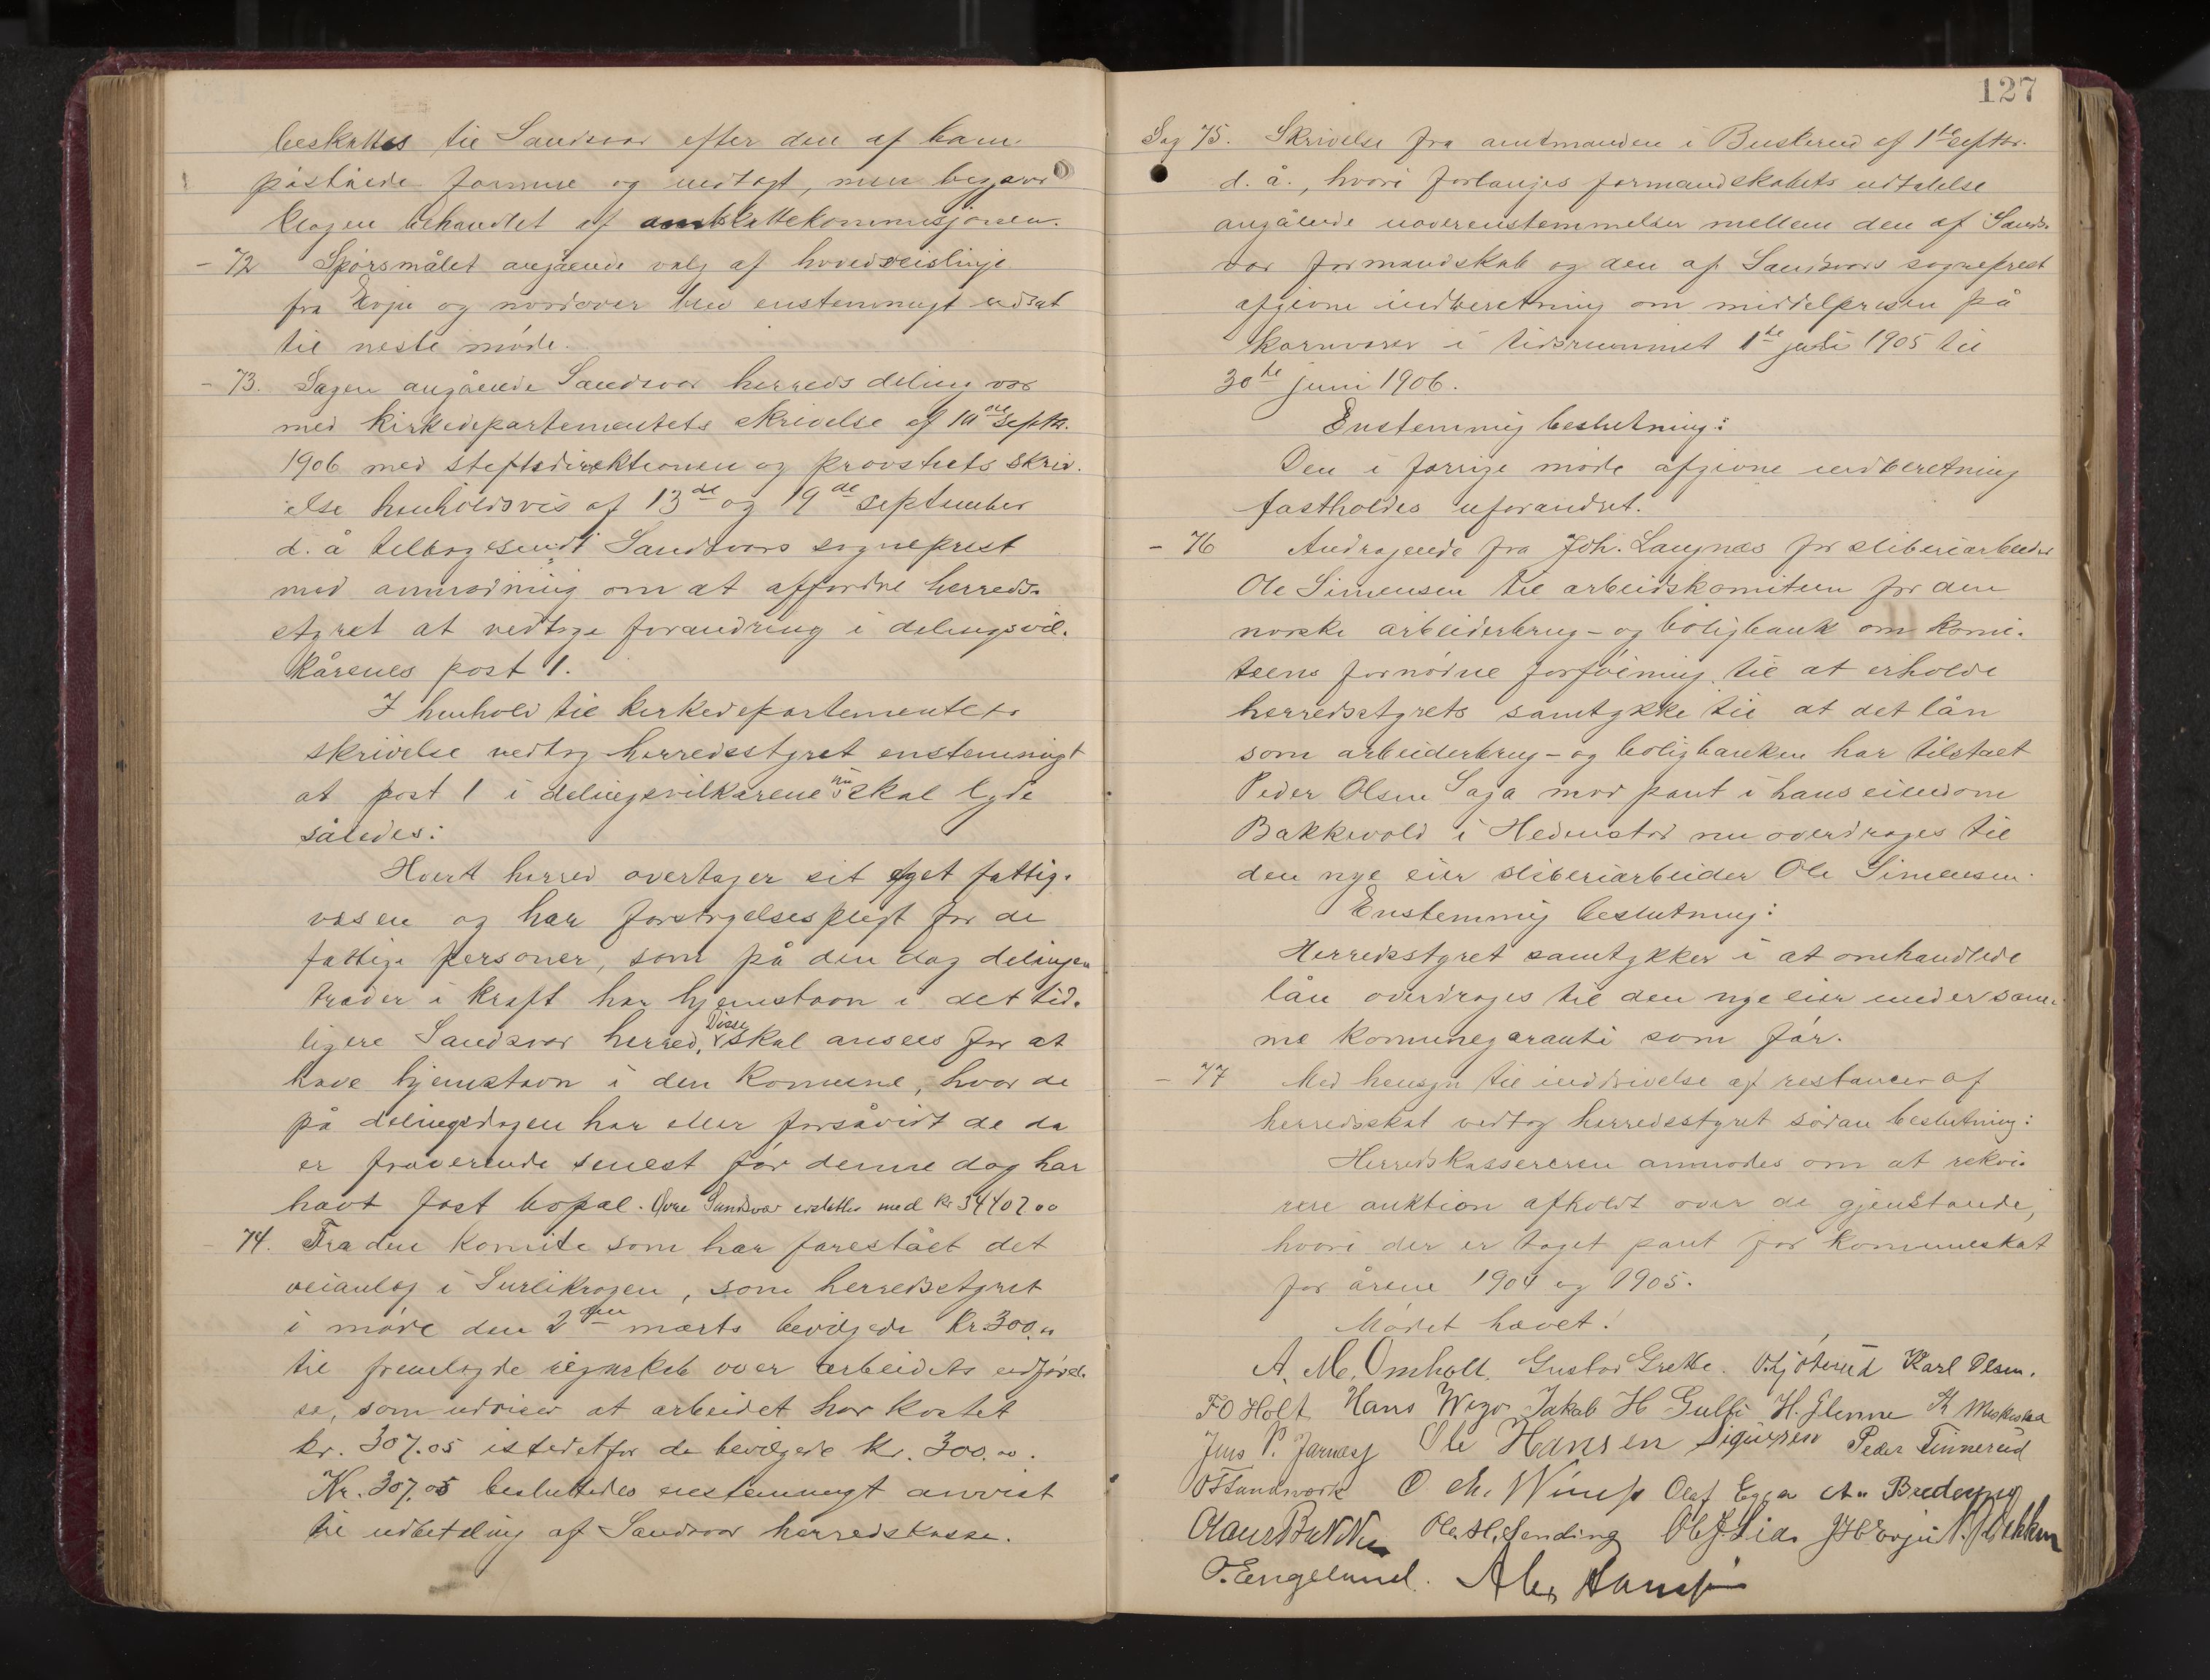 beskattes til Sandsvær efter den af ham
påståede formue og indtægt, men begjæres
klagen behandlet af amtskattekommisjonen.
- 72 Spørsmålet angående valg af hovedveislinje
fra Evju og nordover blev enstemmigt udsat
til neste møde.
- 73. Sagen angående Sandsvær herreds deling var
med kirkedepartementets skrivelse af 10de septbr.
1906 med stiftsdirektionen og provstiets skriv-
else henholdsvis af 13de og 19de september
d. å tilbagesendt Sandsværs sogneprest
med anmodning om at affordre herreds-
styret at vedtage forandring i delingsvil-
kårenes post 1.
I henhold til kirkedepartementets
skrivelse vedtog herredsstyret enstemmigt
at post 1 i delingsvilkårene nu skal lyde
således:
Hvert herred overtager sit eget fattig-
væsen og har forsørgelsespligt for de
fattige personer, som på den dag delingen
træder i kraft har hjemstavn i det tid-
ligere Sandsvær herred, Disse skal ansees for at
have hjemstavn i den komune, hvor de
på delingsdagen har eller forsåvidt de da
er fraværende senest før denne dag har
havt fast bopæl. Øvre Sandsvær erstattes med kr 34402 00
74. Fra den komite som har forestået det
veianlæg i Surlikrogen, som herredsstyret
i møde den 2den marts bevilgede kr. 300.00
til fremlagde regnskab over arbeidets udførel-
se, som udviser at arbeidet har kostet
kr. 307.05 istedetfor de bevilgede kr. 300.00.
Kr. 307.05 besluttedes enstemmigt anvist
til udbetaling af Sandsvær herredskasse.
127
Sag 75. Skrivelse fra amtmanden i Buskerud af 1ste septbr.
d. å., hvori forlanges formandskabets udtalelse
angående uoverenstemmelser mellem den af Sands-
vær formandskab og den af Sandsværs sogneprest
afgivne indberetning om middelprisen på
kornvarer i tidsrummet 1ste juli 1905 til
30te juni 1906.
Enstemmig beslutning:
Den i forrige møde afgivne indberetning
fastholdes uforandret.
- 76 Andragende fra Joh. Langnæs for sliberiarbeider
Ole Simensen til arbeidskomiteen for den
norske arbeiderbrug- og boligbank om komi-
teens fornødne forføining til at erholde
herredsstyrets samtykke til at det lån
som arbeiderbrug- og boligbanken har tilstået
Peder Olsen Saga mod pant i hans eiendom
Bakkevold i Hedenstad nu overdrages til
den nye eier sliberiarbeider Ole Simensen.
Enstemmig beslutning:
Herredsstyret samtykker i at omhandlede
lån overdrages til den nye eier under sam-
me komunegaranti som før.
- 77 Med hensyn til inddrivelse af restancer af
herredsskat vedtog herredsstyret sådan beslutning:
Herredskassereren anmodes om at rekvi-
rere auktion afholdt over de gjenstande,
hvori der er taget pant for komuneskat
for årene 1904 og 1905.
Mødet hævet!
A. M. Omholt. Gustav Grette. Karl Olsen.
F O Holt Hans Jakob H Gulli H. K
Jens P. Ole Hansen Peder Tinnerud
O. Chr. Olaf
Ole H. Sending Ole J. Lia. J H Evju
T. Engelund. Alex Hansen